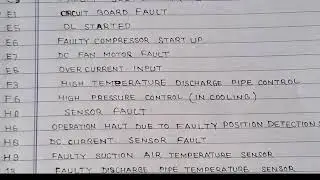 E1 CIRCUIT BOARD FAULT
E5 OL STARTED
E6 FAULTY COMPRESSOR START UP
E7 DC FAN MOTOR FAULT
E8 OVER CURRENT INPUT
F3 HIGH TEMPERATURE DISCHARGE PIPE CONTROL
F6 HIGH PRESSURE CONTROL (IN COOLING)
H0 SENSOR FAULT
H6 OPERATION HALT DUE TO FAULTY POSITION DETECTION S
H8 DC CURRENT SENSOR FAULT
H9 FAULTY SUCTION AIR TEMPERATURE SENSOR
FAULTY DISCHARGE PIPE TEMPERATURE SENSOR